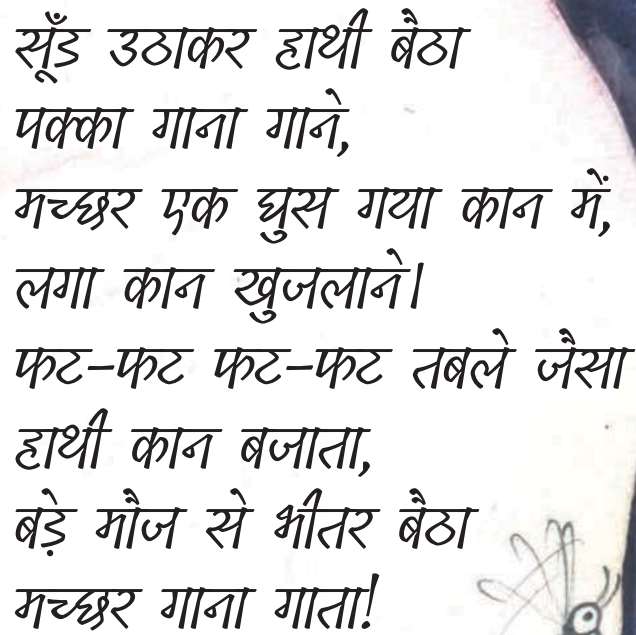 सूँड उठाकर हाथी बैठा
पक्का गाना गाने,
मच्छर एक घुस गया कान में,
लगा कान खुजलाने।
फट–फट फट–फट तबले जैसा
हाथी कान बजाता,
बड़े मौज से भीतर बैठा
मच्छर गाना गाता!